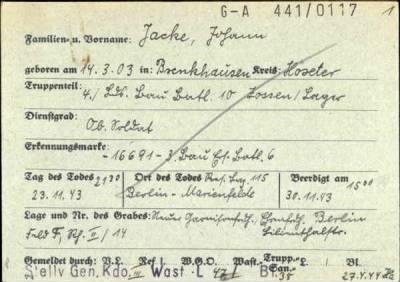 G-A 441/0117 1
Familien- u. Vorname: Jacke, Johann
geboren am 14.3.03 in: Brenkhausen Kreis: Höxter
Truppenteil:
4./ Lds. Bau Batl. 10 Zossen/Lager
Dienstgrad:
Ob. Soldat
Erkennungsmarke:
-16691- 3. Bau Ers. Batl. 6
Tag des Todes 21 30 Ort des Todes Res. Laz. 115 Beerdigt am 15 00
23.11.43 Berlin-Marienfelde 30.11.43
Lage und Nr. des Grabes: Neuer Garnisonfrdh., Berlin
Feld F, Rh. II / 14 Lilienthalstr.
Gemeldet durch: V.L. Ref W.G.O. Wast. Trupp.- L. Bl.
San.-
Stellv Gen. Kdo. III Wast L 47 Bl. 38 27.4.44